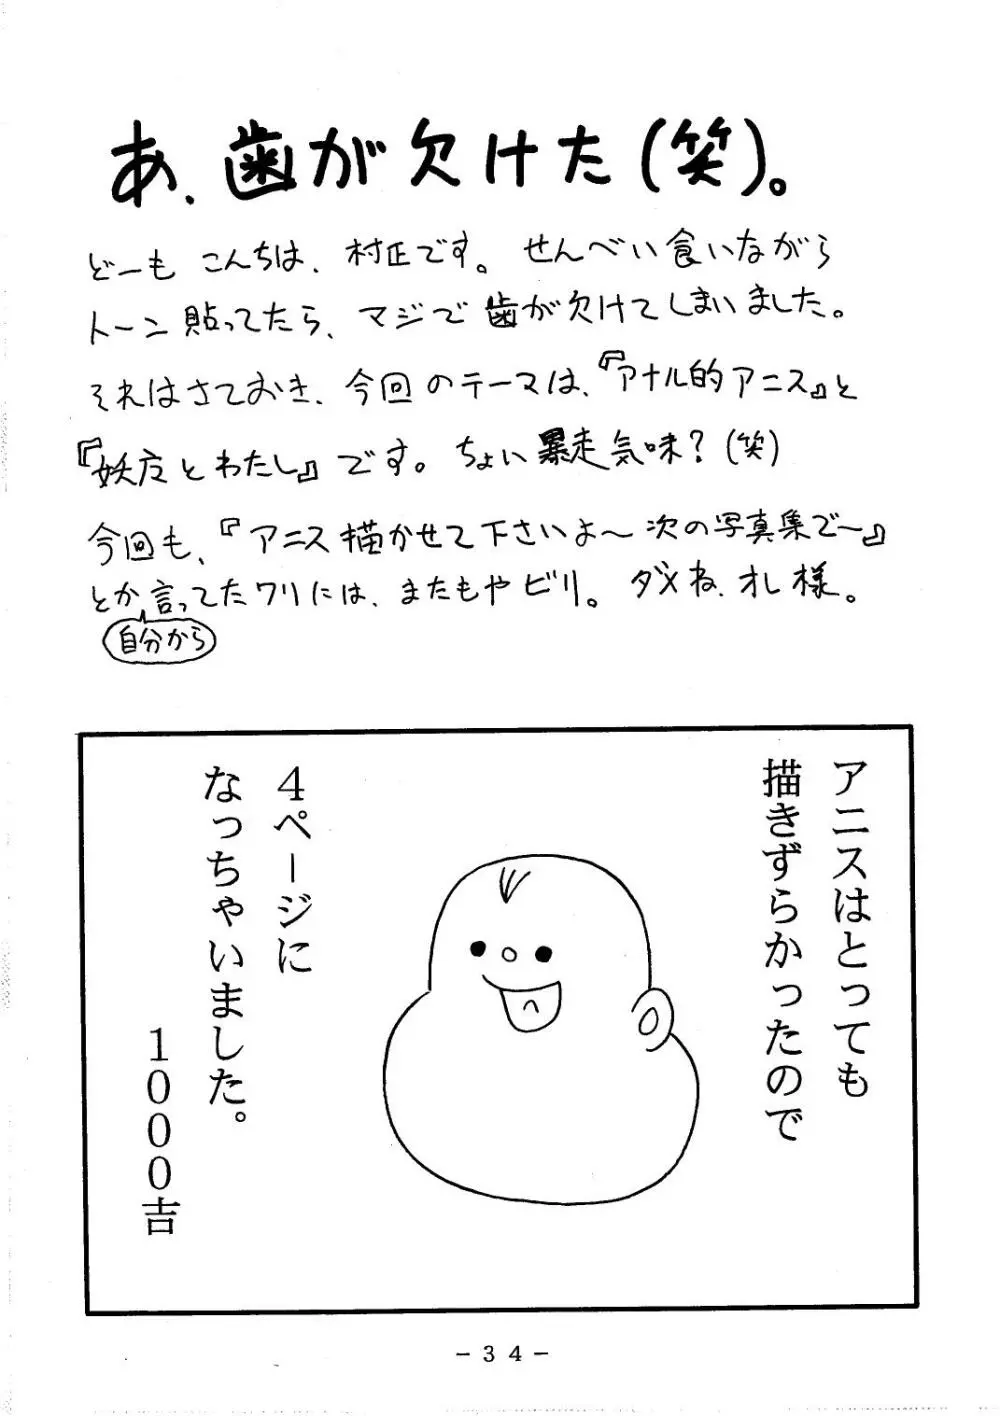 あ、歯が欠けた(笑)。
どーも こんちは、村正です。せんべい食いながら
トーン貼ってたら、マジで歯が欠けてしまいました。
それはさておき、今回のテーマは、『アナル的アニス』と
『妖広とわたし』です。ちょい暴走気味?(笑)
今回も、『アニス描かせて下さいよ～次の写真集で～』
とか言ってたワリには、またもやビリ。ダメね、オレ様。
自分から
アニスはとっても
描きずらかったので
4ページに
なっちゃいました。
1000吉
-34-